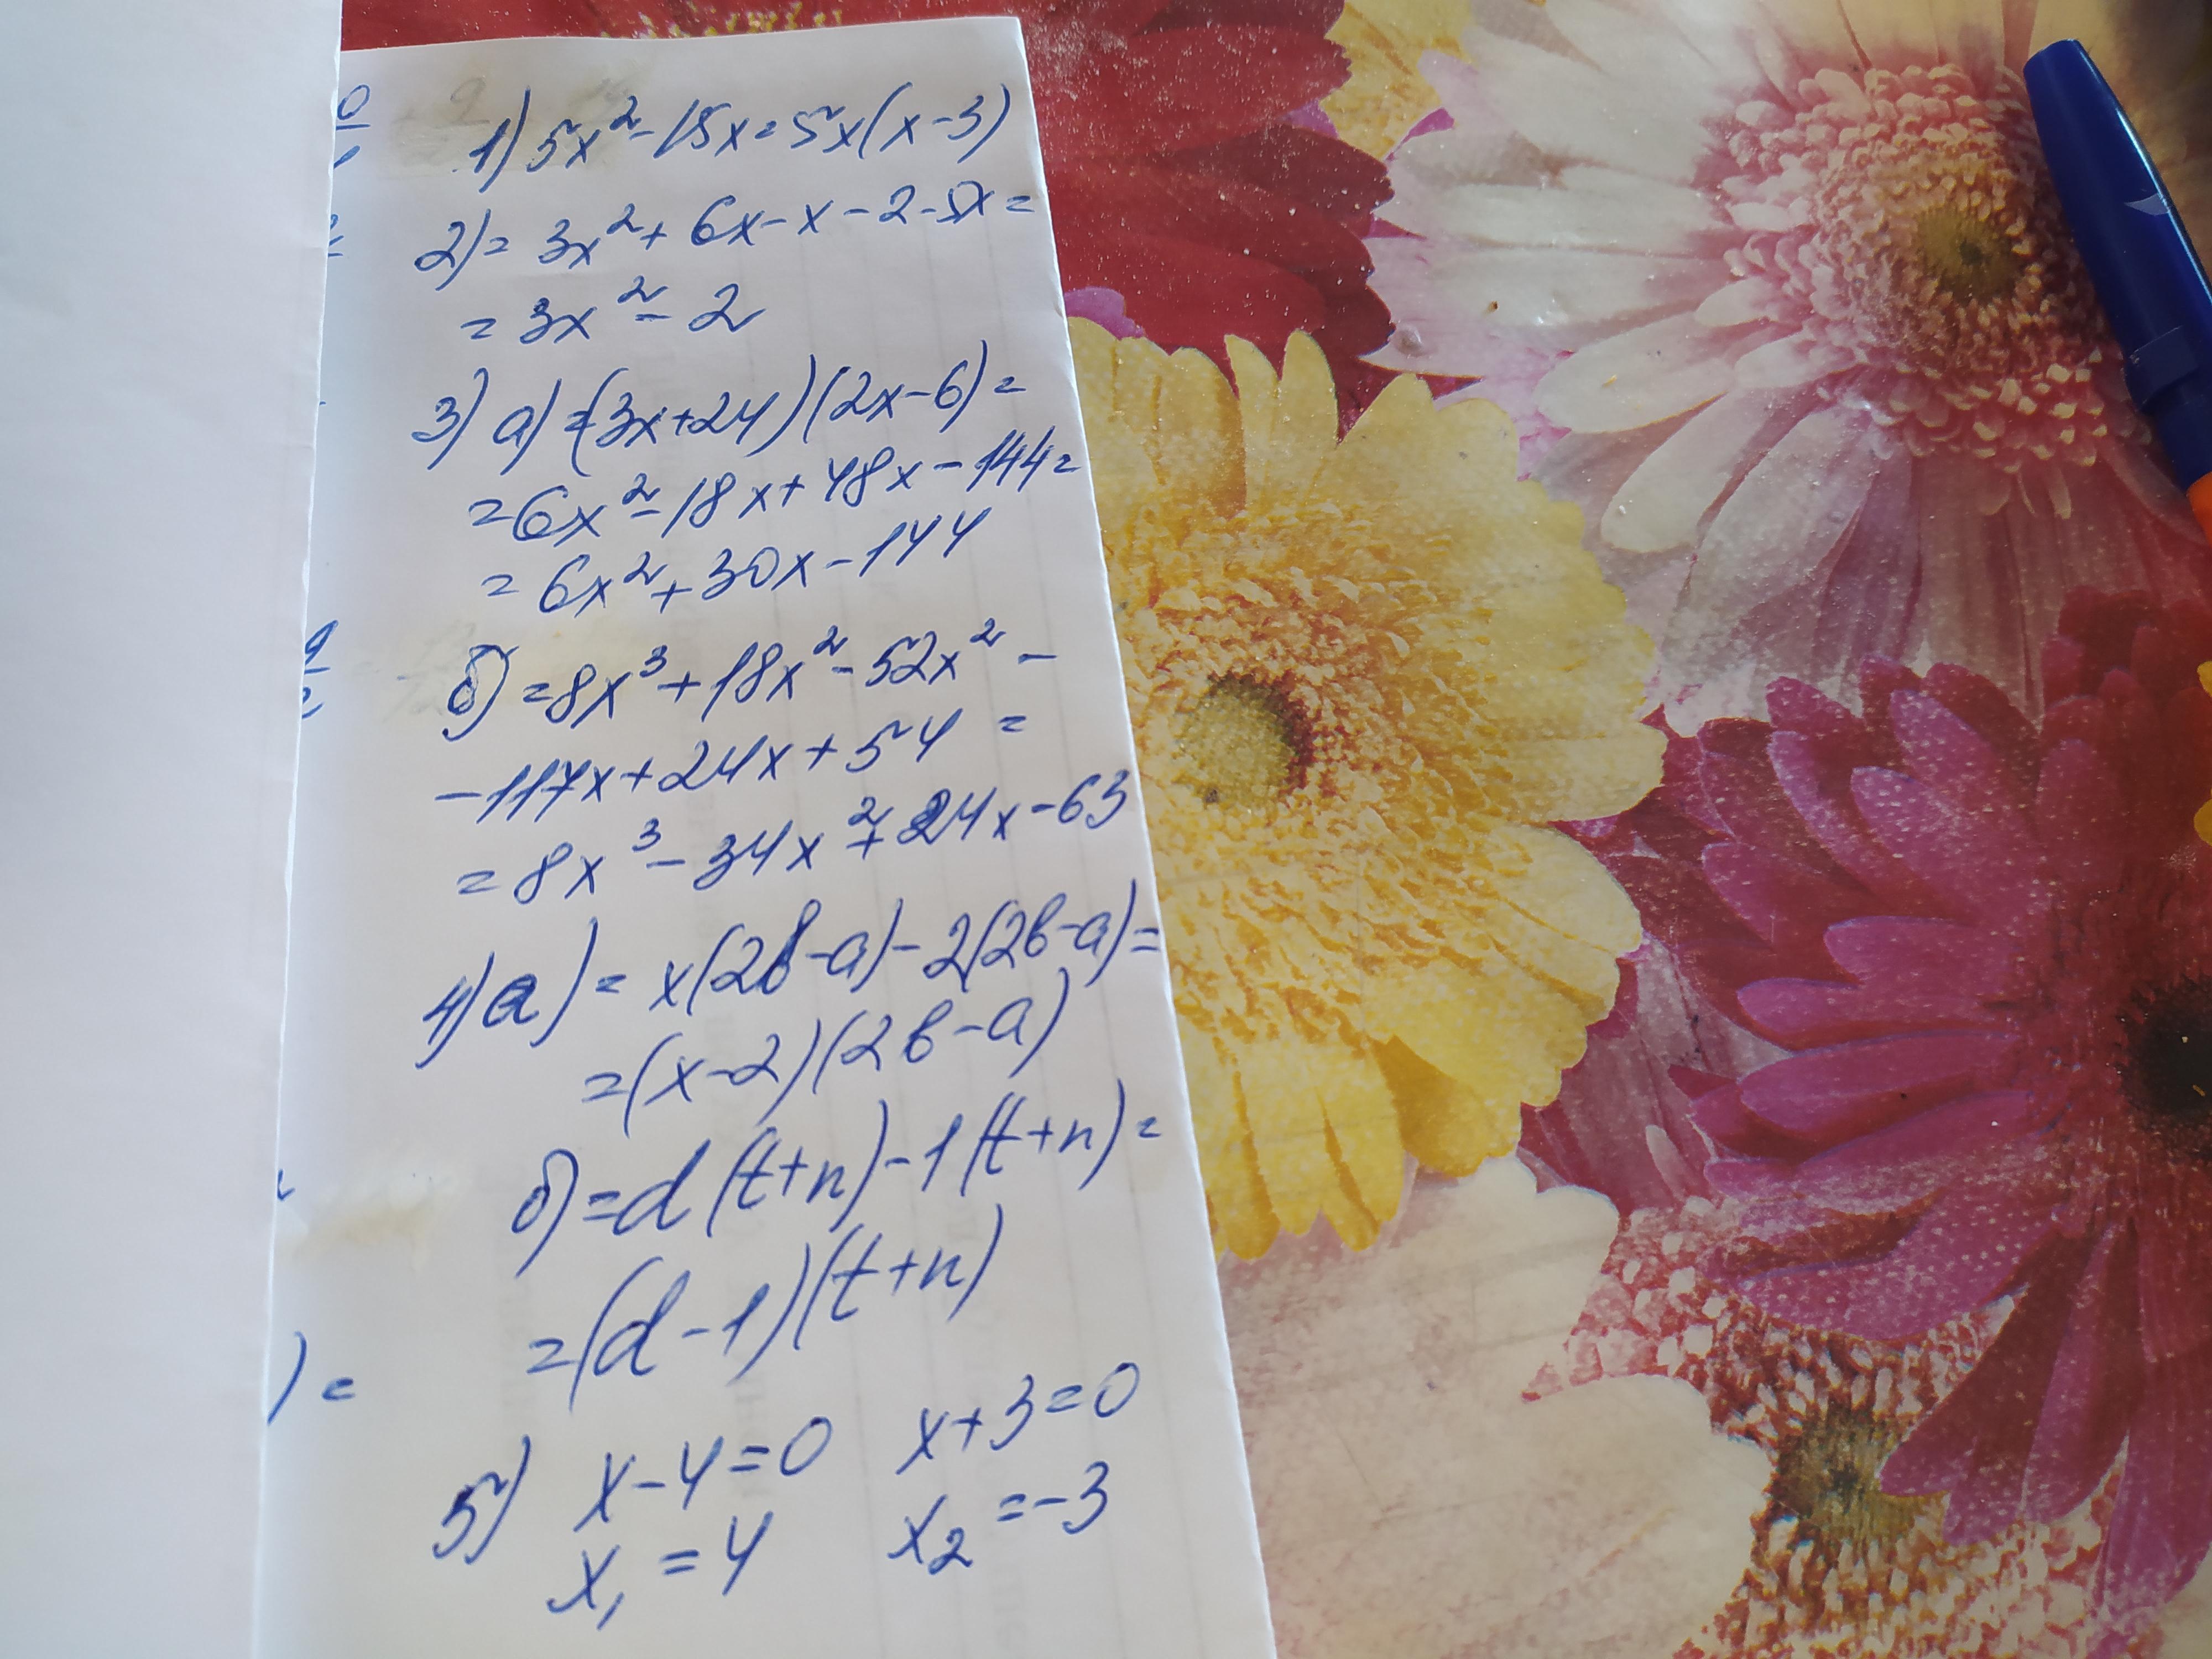 1) 5x² - 15x = 5x(x-3)
2) = 3x² + 6x - x - 2 - 5x =
= 3x² - 2
3) а) = (3x+24)(2x-6) =
= 6x² - 18x + 48x - 144 =
= 6x² + 30x - 144
б) = 8x³ + 18x² - 52x² -
- 117x + 24x + 54 =
= 8x³ - 34x² + 24x - 63
4) а) = x(2b-a) - 2(2b-a) =
= (x-2)(2b-a)
б) = d(t+n) - 1(t+n) =
) =
= (d-1)(t+n)
5) x-4=0 x+3=0
x₁ = 4 x₂ = -3